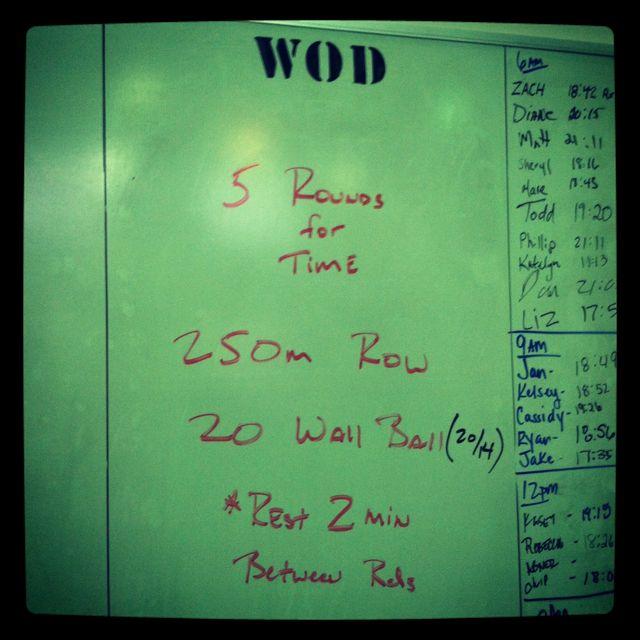 WOD
5 Rounds
for
Time
250m Row
20 Wall Ball (20/14)
*Rest 2 min
Between Rds
6AM
ZACH 18:42
Diane 20:15
Matt :11
Sheryl 18:16
Todd 19:20
Phillip 21:11
Katelyn
Dan
Liz
9AM
Jan- 18:49
Kelsey- 18:52
Cassidy-
Ryan- 18:56
Jake- 17:35
12pm
- 19:13
Rebecca - 18:26